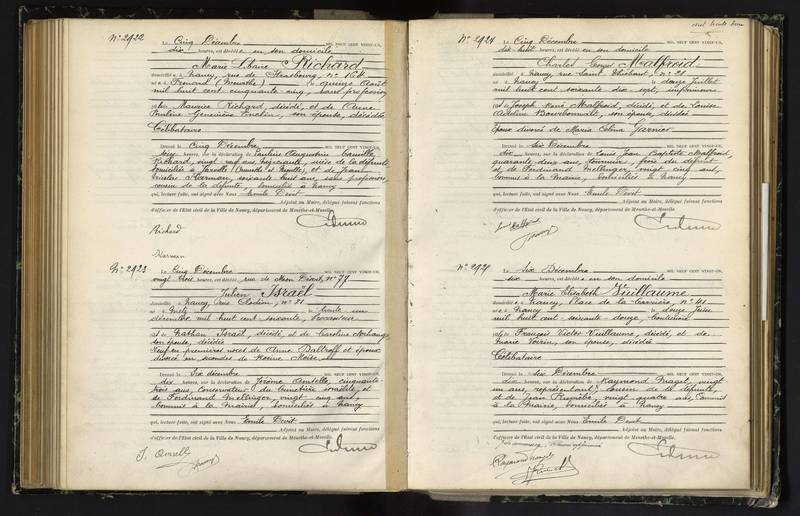 N° 2922
Le Cinq Décembre MIL NEUF CENT VINGT-UN,
dix heures, est décédée en son domicile
Marie Richard
domiciliée à Nancy, rue de Strasbourg, n° 164
née à (Meurthe) le quinze Août
mil huit cent cinquante cinq, sans profession
fille Maurice Richard, décédé, et de Anne
Pauline Geneviève son épouse, décédée
Célibataire
Dressé le Cinq Décembre MIL NEUF CENT VINGT-UN,
heures, sur la déclaration de Camille
Richard, vingt neuf ans, nièce de la défunte
domiciliée à Jarville (Meurthe et Moselle), et de
Nicolas Harman, soixante huit ans, sans profession,
cousin de la défunte, domiciliés à Nancy
qui, lecture faite, ont signé avec Nous Emile Devit
Adjoint au Maire, délégué faisant fonctions
d'officier de l'État civil de la Ville de Nancy, département de Meurthe-et-Moselle.
Richard
Harman
N° 2923
Le Cinq Décembre MIL NEUF CENT VINGT-UN,
vingt trois heures, est décédé rue de Mon Désert, n° 77
Julien Israël
domicilié à Nancy, rue n° 31
né à Metz le trente un
décembre mil huit cent soixante,
fils Nathan Israël, décédé, et de Caroline
son épouse, décédée
Veuf en premières noces de Anne Baltroff et époux
divorcé en secondes de Rosine Moïse
Dressé le Six décembre MIL NEUF CENT VINGT-UN,
dix heures, sur la déclaration de Jérôme cinquante
trois ans, Conservateur du Cimetière israélite, et
de Ferdinand Mellinger, vingt cinq ans,
Commis à la Mairie, domiciliés à Nancy
qui, lecture faite, ont signé avec Nous Emile Devit
Adjoint au Maire, délégué faisant fonctions
d'officier de l'État civil de la Ville de Nancy, département de Meurthe-et-Moselle.
cent trente deux
N° 2924
Le Cinq Décembre MIL NEUF CENT VINGT-UN,
dix huit heures, est décédé en son domicile
Charles Louis Malfroid
domicilié à Nancy, rue Saint Thiébaut, n° 21
né à Nancy le douze Juillet
mil huit cent soixante dix sept, imprimeur
fils Joseph René Malfroid, décédé, et de Louise
son épouse, décédée
époux divorcé de Maria Célina Garnier
Dressé le Six Décembre MIL NEUF CENT VINGT-UN,
dix heures, sur la déclaration de Louis Jean Baptiste Malfroid,
quarante deux ans, frère du défunt
et de Ferdinand Mellinger, vingt cinq ans,
Commis à la Mairie, domiciliés à Nancy
qui, lecture faite, ont signé avec Nous Emile Devit
Adjoint au Maire, délégué faisant fonctions
d'officier de l'État civil de la Ville de Nancy, département de Meurthe-et-Moselle.
N° 2925
Le Six Décembre MIL NEUF CENT VINGT-UN,
six heures, est décédée en son domicile
Marie Elisabeth Vuillaume
domiciliée à Nancy, Place de la Carrière, n° 41
née à Nancy le douze Juin
mil huit cent soixante douze,
fille François Victor Vuillaume, décédé, et de
Marie Voirin, son épouse, décédée
Célibataire
Dressé le Six Décembre MIL NEUF CENT VINGT-UN,
dix heures, sur la déclaration de Raymond vingt
un ans, représentant, cousin de la défunte,
et de Jean vingt quatre ans, Commis
à la Mairie, domiciliés à Nancy
qui, lecture faite, ont signé avec Nous Emile Devit
Adjoint au Maire, délégué faisant fonctions
d'officier de l'État civil de la Ville de Nancy, département de Meurthe-et-Moselle.